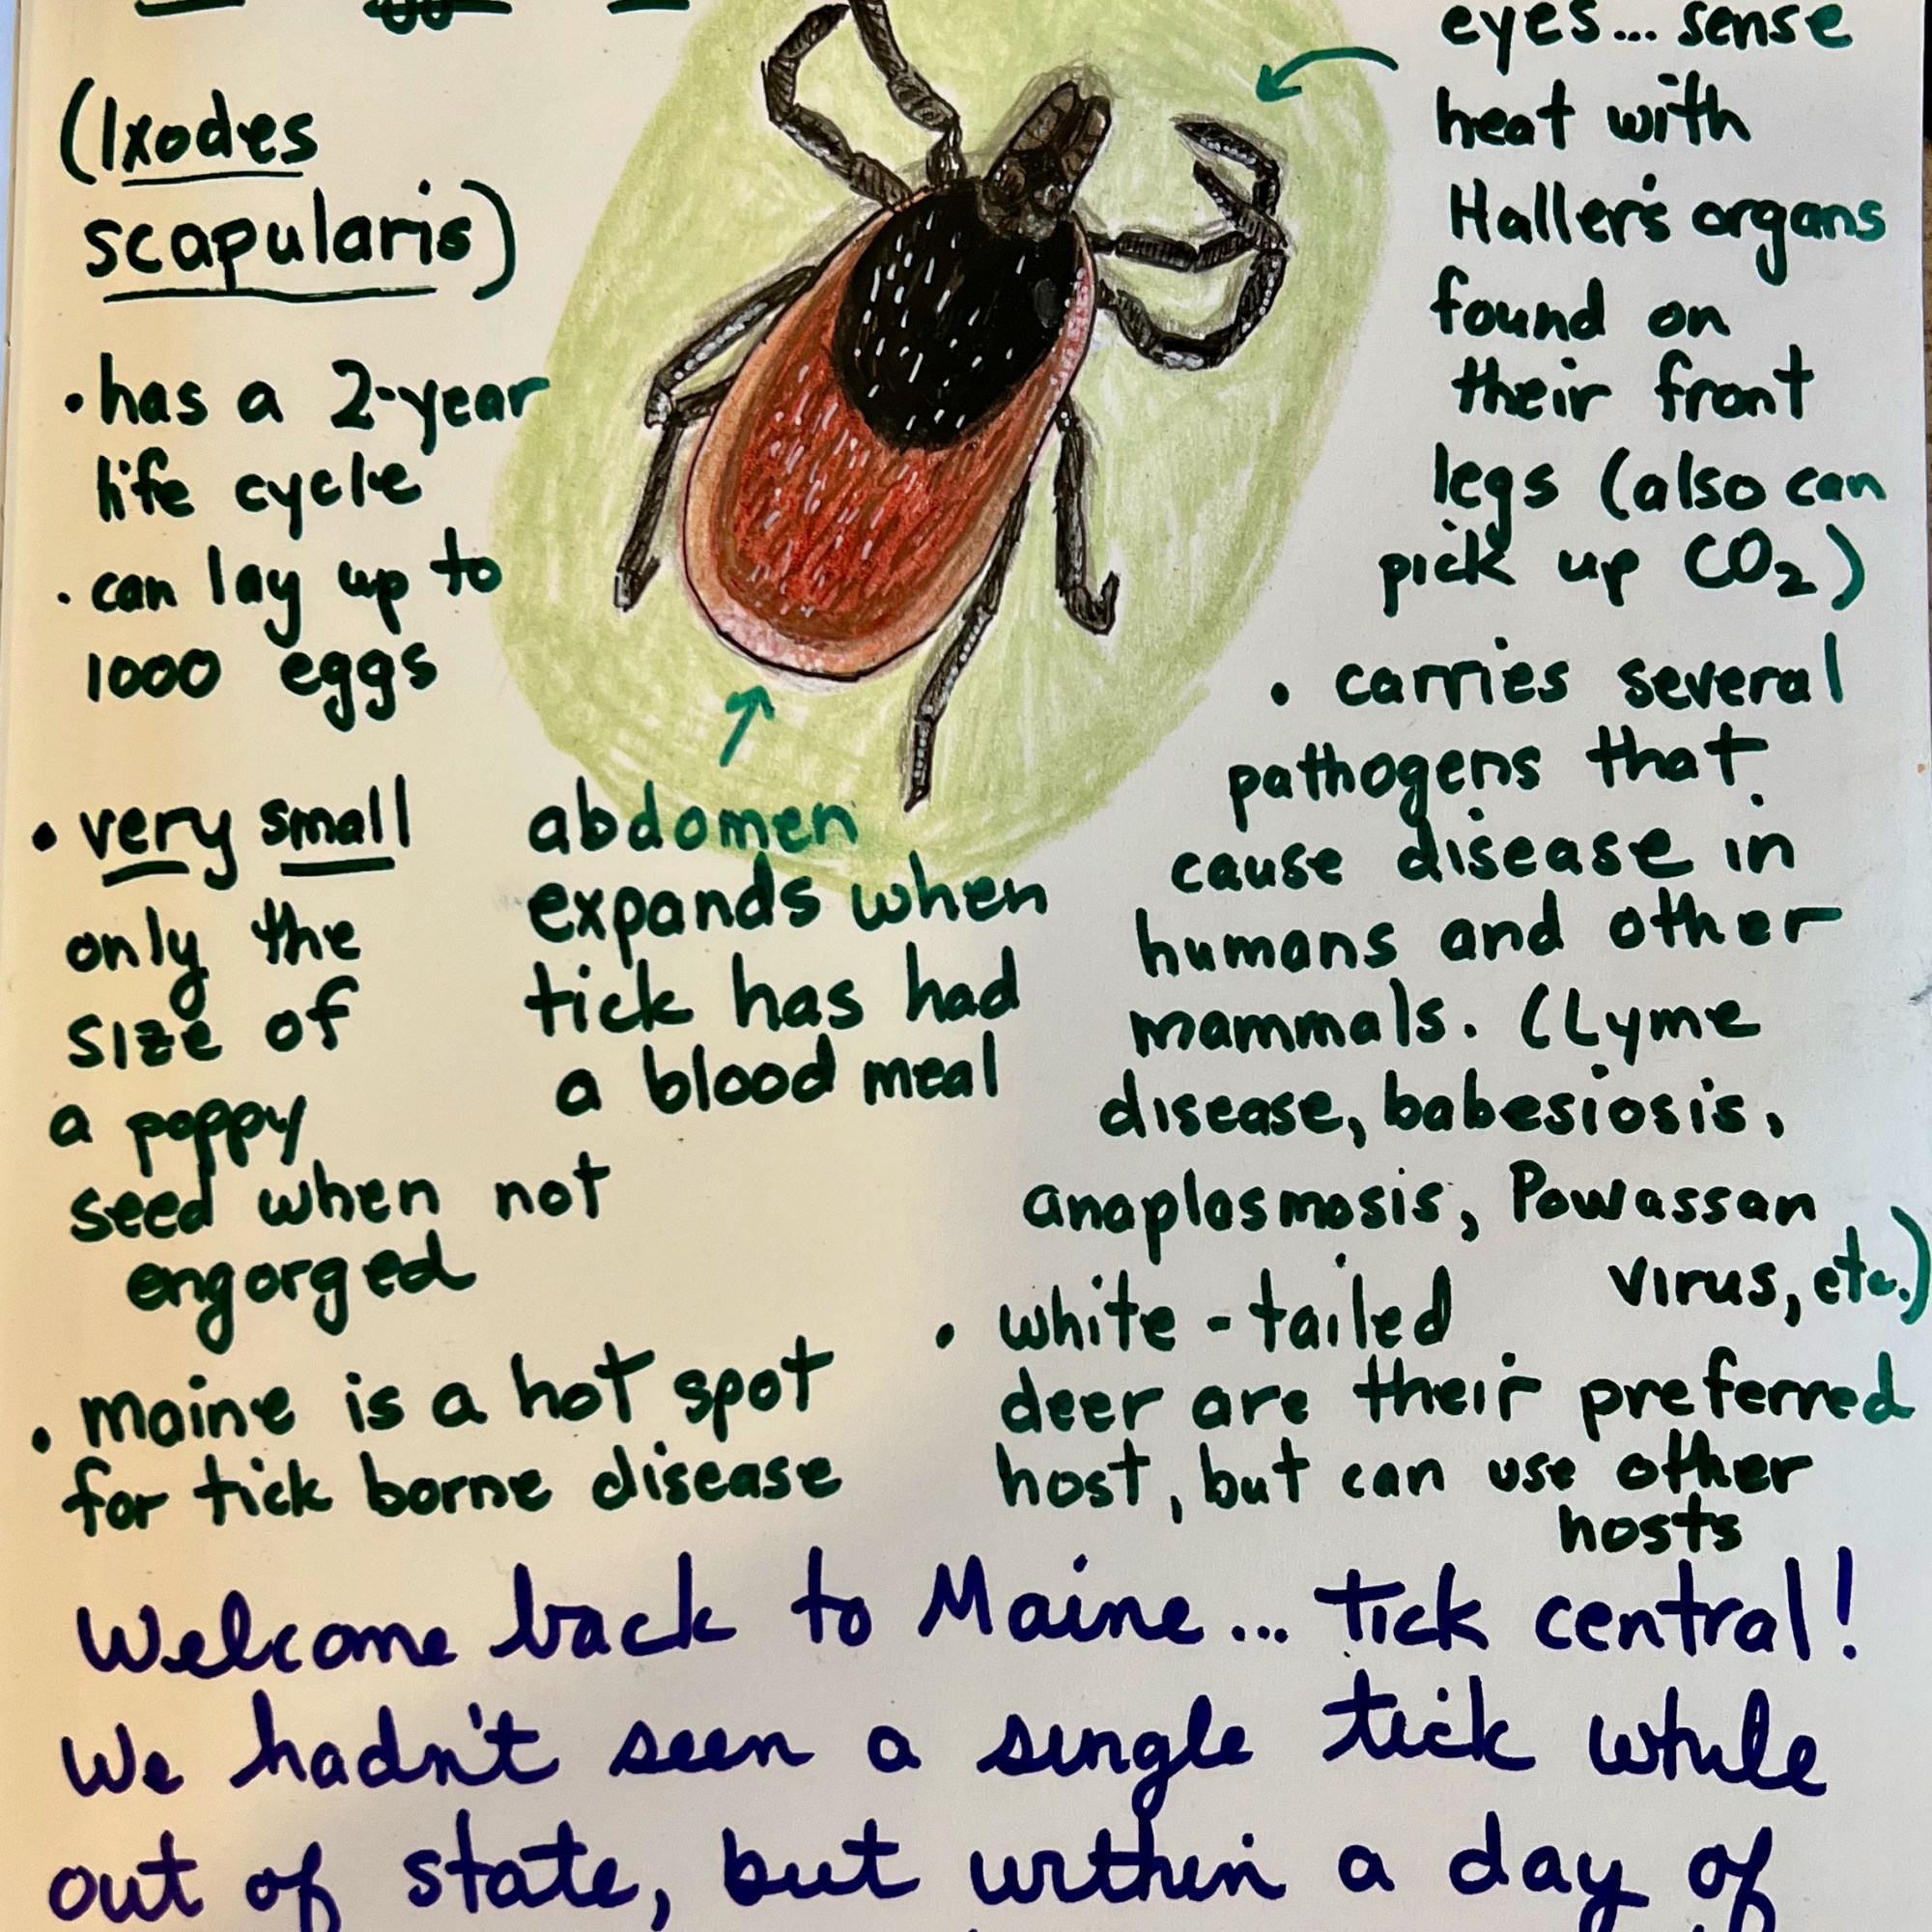 (Ixodes
scapularis)
• has a 2-year
life cycle
• can lay up to
1000 eggs
• very small
only the
size of
a poppy
seed when not
engorged
• maine is a hot spot
for tick borne disease
abdomen
expands when
tick has had
a blood meal
eyes... sense
heat with
Haller's organs
found on
their front
legs (also can
pick up CO₂)
• carries several
pathogens that
cause disease in
humans and other
mammals. (Lyme
disease, babesiosis,
anaplasmosis, Powassan
virus, etc.)
• white-tailed
deer are their preferred
host, but can use other
hosts
Welcome back to Maine... tick central!
We hadn't seen a single tick while
out of state, but within a day of